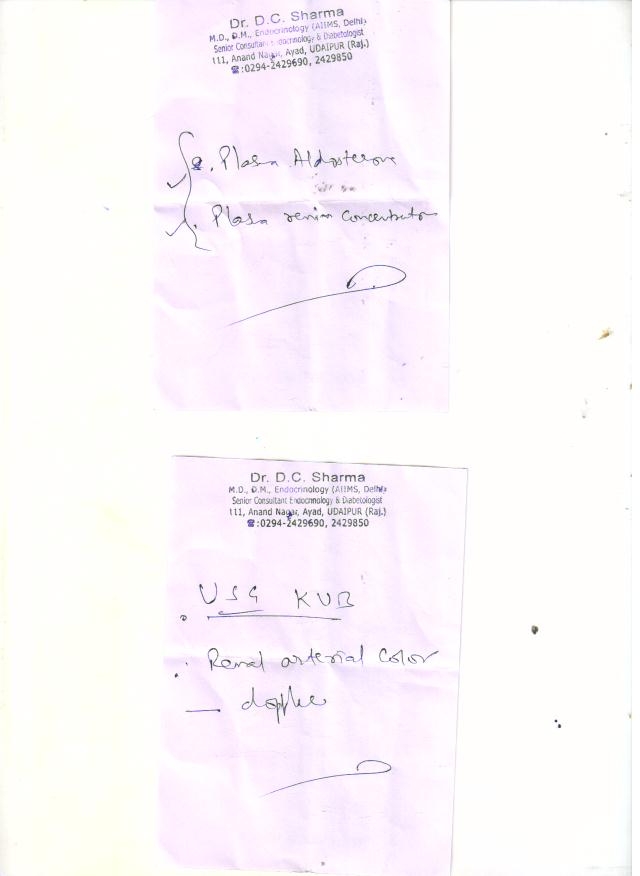 Dr. D.C. Sharma
M.D., D.M., Endocrinology (AIIMS, Delhi)
Senior Consultant Endocrinology & Diabetologist
111, Anand Nagar, Ayad, UDAIPUR (Raj.)
☎:0294-2429690, 2429850
Plasma Aldosterone
Plasma renin concentration
Dr. D.C. Sharma
M.D., D.M., Endocrinology (AIIMS, Delhi)
Senior Consultant Endocrinology & Diabetologist
111, Anand Nagar, Ayad, UDAIPUR (Raj.)
☎:0294-2429690, 2429850
USG KUB
Renal arterial Color
— doppler